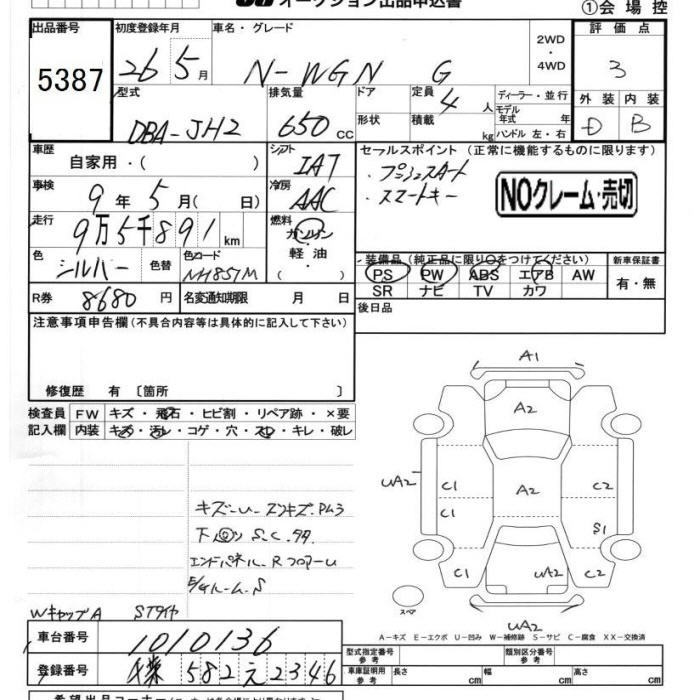 オークション出品申込書
①会場控
出品番号
5387
初度登録年月
26 5月
車名・グレード
N-WGN G
2WD
・
4WD
評価点
3
外装 内装
D B
型式
DBA-JH2
排気量
650 CC
ドア
形状
定員
4 人
積載 kg
ディーラー・並行
モデル
年式 年
ハンドル 左・右
車歴
自家用・( )
シフト
IAT
セールスポイント (正常に機能するものに限ります)
・プッシュスタート
・スマートキー
NOクレーム・売切
車検
9年5月( 日)
冷房
AAC
走行
9万5千891km
燃料
ガソリン
・
軽油
・
色
シルバー
色替
色コード
NH857M
装備品 (純正品に限り○をつけてください)
PS PW ABS エアB AW
SR ナビ TV カワ
新車保証書
有・無
R券
8680円
名変通知期限 月 日
後日品
注意事項申告欄(不具合内容等は具体的に記入して下さい)
修復歴 有 〔箇所 〕
検査員
記入欄
FW キズ・飛石・ヒビ割・リペア跡・×要
内装 キズ・汚レ・コゲ・穴・スレ・キレ・破レ
A1
A2
UA2
C1
C2
A2
C1
S1
C1
UA2
C2
UA2
スペア
下回り S.C.
エンドパネル
WキャップA
STタイヤ
A-キズ E-エクボ U-凹み W-補修跡 S-サビ C-腐食 XX-交換済
車台番号
1010136
登録番号
582え2346
型式指定番号
参考
類別区分番号
参考
車庫証明用
参考
長さ
幅
高さ
cm